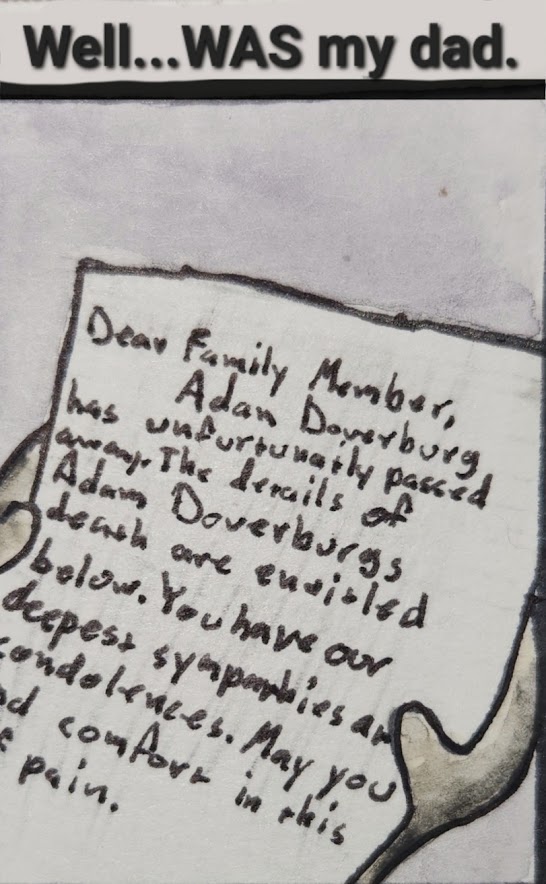 Well...WAS my dad.
Dear Family Member,
Adam Doverburg
has unfurtunatly passed
away. The derails of
Adam Doverburgs
death are envisled
below. You have our
deepest sympathies an
condolences. May you
comfort in this
pain.